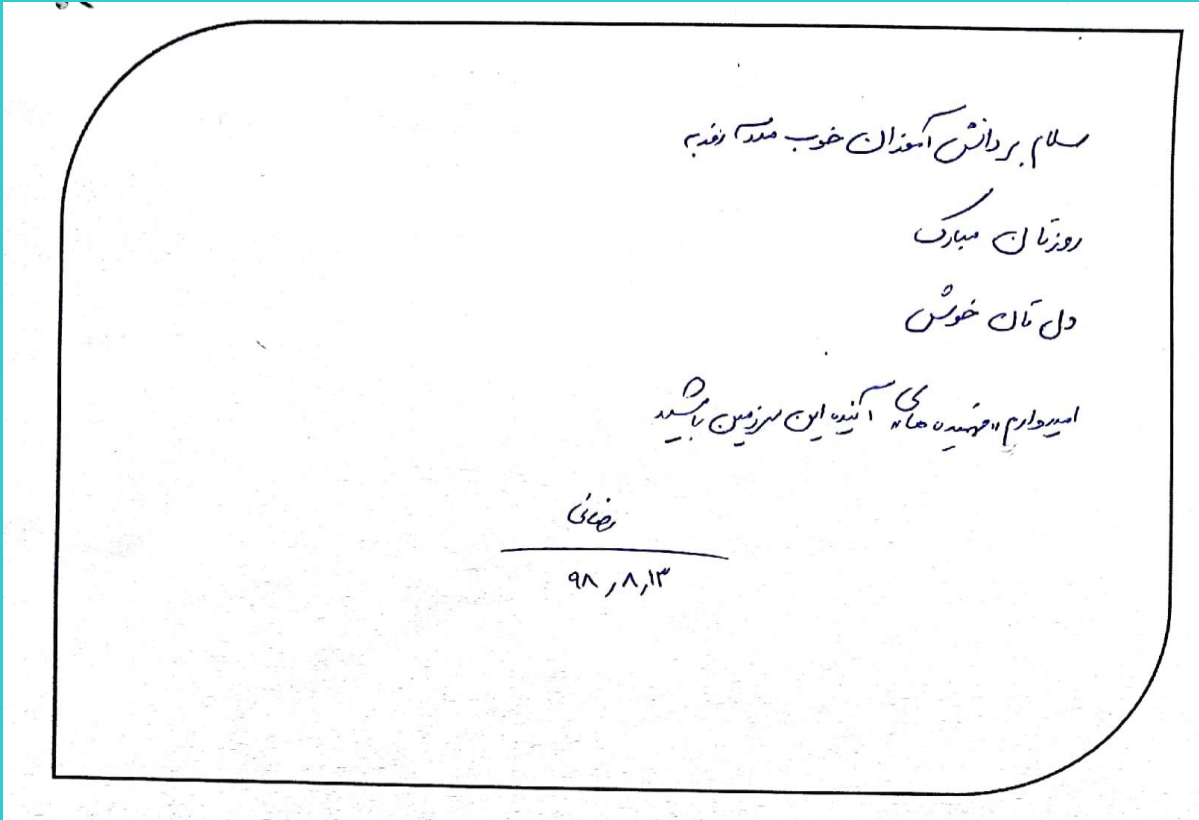 سلام بر دانش آموزان خوب مدرسه
روزتان مبارک
دل تان خوش
امیدواریم "فهمیده های" آینده این سرزمین باشید
۹۸٫۸٫۱۳